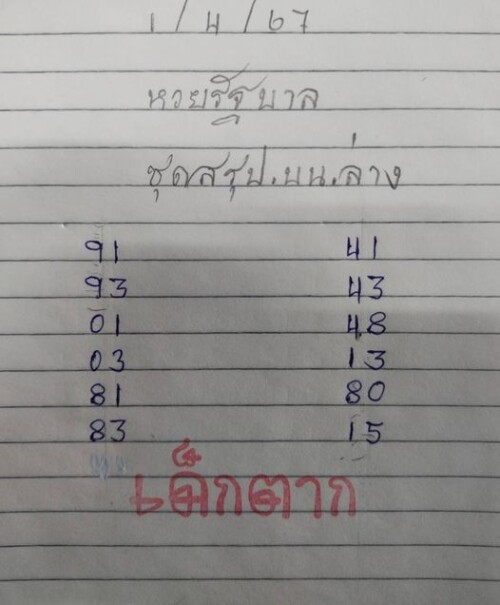 1/4/67
หวยรัฐบาล
ชุดสรุป.บน.ล่าง
91 41
93 43
01 48
03 13
81 80
83 15
เด็กตาก